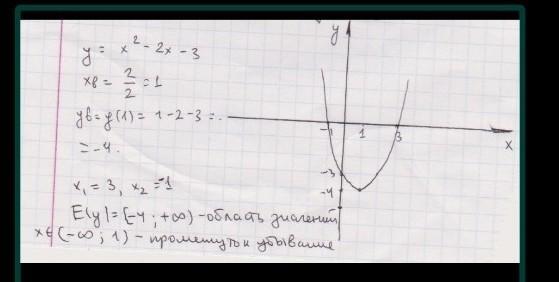 y = x² - 2x - 3
xв = 2/2 = 1
yв = y(1) = 1 - 2 - 3 =
= -4.
x₁ = 3, x₂ = -1
E(y) = [-4; +∞) - область значений
x∈(-∞; 1) - промежуток убывание
y
-1 1 3
x
-3
-4